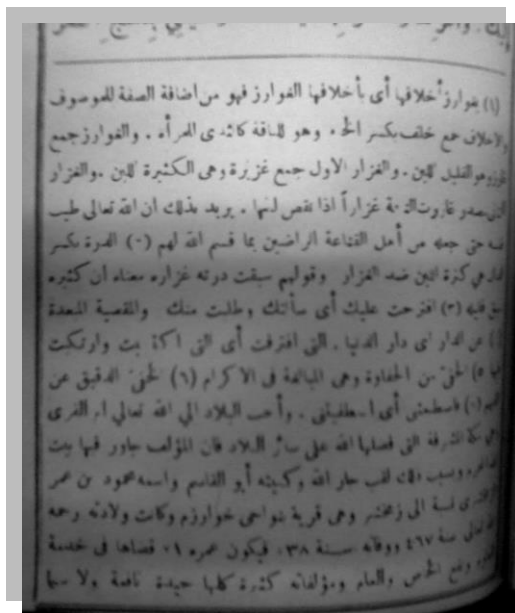 (١) بغوارز أخلافها أى بأخلافها الغوارز فهو من اضافة الصفة للموصوف
والاخلاف جمع خلف بكسر الخاء وهو للناقة كالثدى للمرأة . والغوارز جمع
غارز وهو القليل اللبن . والغزار الاول جمع غزيرة وهى الكثيرة اللبن . والغزار
الثانى مصدر غارزت الناقة غزاراً اذا نقص لبنها . يريد بذلك ان الله تعالى طيب
نفسه حتى جعله من أهل القناعة الراضين بما قسم الله لهم (٢) الدرة بكسر
الدال هى كثرة اللبن ضد الغزار وقولهم سبقت درته غزاره معناه ان كثيره
سبق قليله (٣) اقترحت عليك أى سألتك وطلبت منك والمقصية المبعدة
عن الدار اى دار الدنيا . التى اقترفت أى التى
(٥) الحفى من الحفاوة وهى المبالغة فى الاكرام (٦) الخفى الدقيق عن
أى . وأحب البلاد الى الله تعالى ام القرى
المشرفة التى فضلها الله على سائر البلاد فان المؤلف جاور فيها بيت
ذلك لقب جار الله وكنيته أبو القاسم واسمه محمود بن عمر
نسبة الى زمخشر وهى قرية بنواحى خوارزم وكانت ولادته رحمه
سنة ٤٦٧ ووفاته سنة ٥٣٨ فيكون عمره ٧١ قضاها فى خدمة
ونفع الخاص والعام ومؤلفاته كثيرة كلها جيدة نافعة ولا سيما